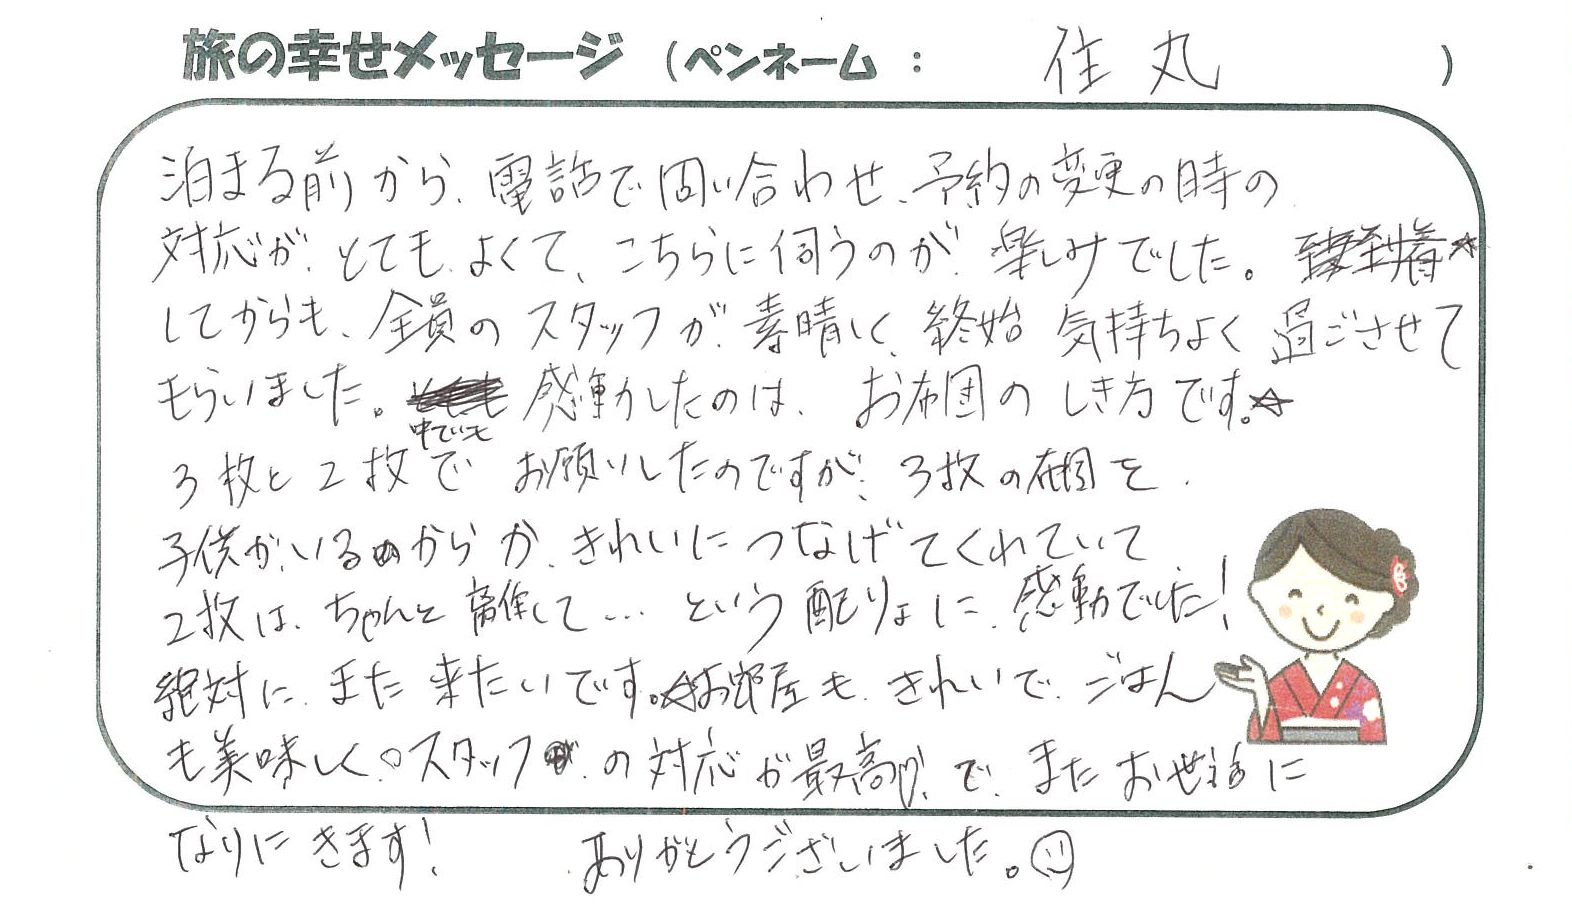 旅の幸せメッセージ (ペンネーム : 住丸 )
泊まる前から、電話で問い合わせ、予約の変更の時の
対応が、とても、よくて、こちらに伺うのが、楽しみでした。到着☆
してからも、全員のスタッフが、素晴しく、終始 気持ちよく 過ごさせて
もらいました。中でも 感動したのは、お布団の しき方です。☆
3枚と2枚で お願いしたのですが、3枚の布団を、
子供がいるからか、きれいにつなげてくれていて
2枚は、ちゃんと 離して… という 配りょに、感動でした!
絶対に、また 来たいです。☆お部屋も、きれいで、ごはん
も美味しく、スタッフの 対応が 最高で、また お世話に
なりに きます! ありがとうございました。